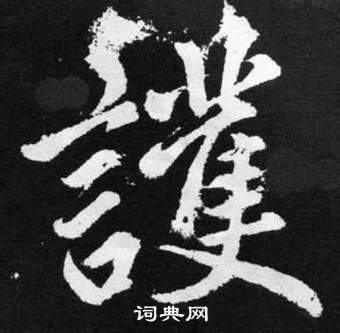 護
词典网